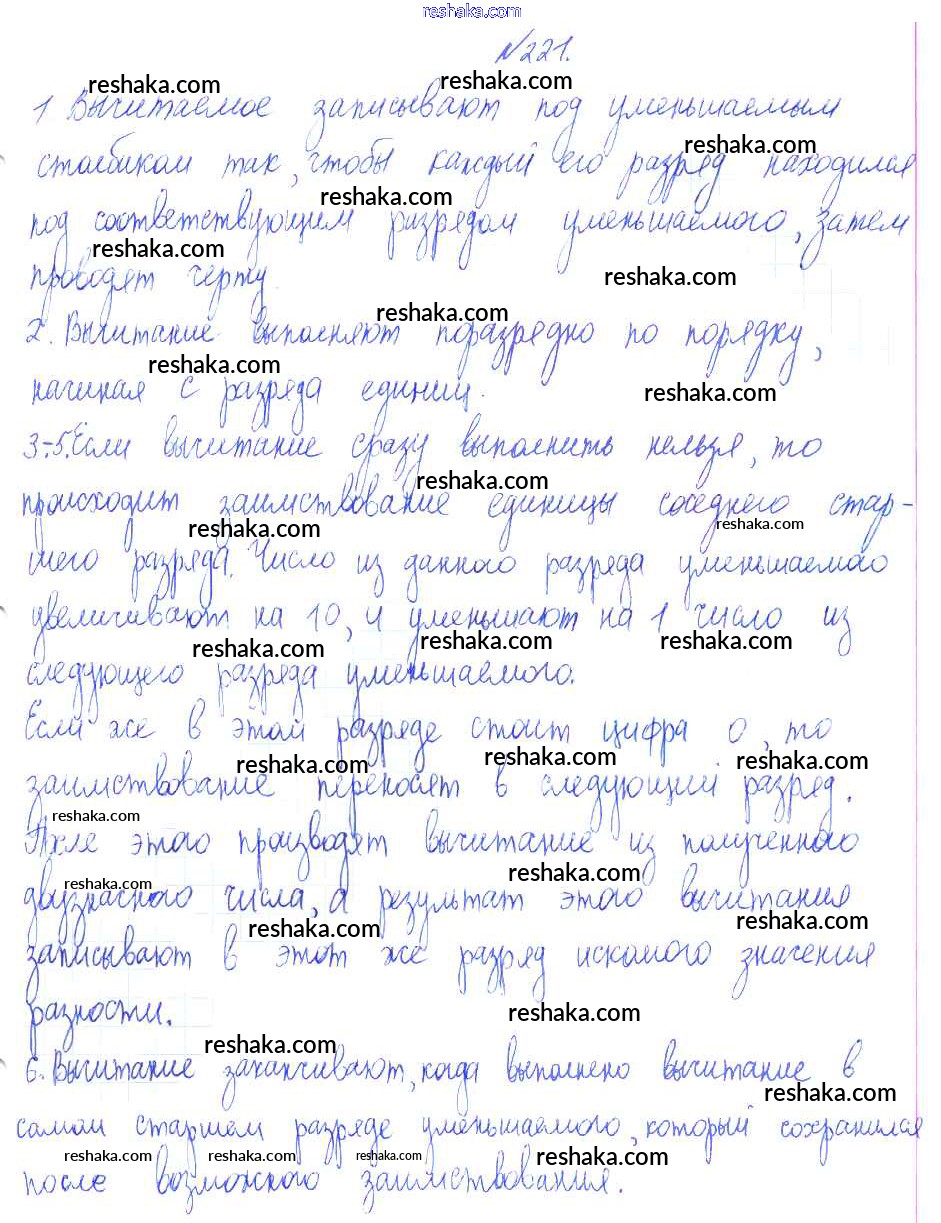 reshaka.com
№221.
reshaka.com reshaka.com
1 Вычитаемое записывают под уменьшаемым
reshaka.com
столбиком так, чтобы каждый его разряд находился
reshaka.com
под соответствующим разрядом уменьшаемого, затем
reshaka.com reshaka.com
проводят черту.
reshaka.com
2. Вычитание выполняют поразрядно по порядку,
reshaka.com reshaka.com
начиная с разряда единиц.
3-5. Если вычитание сразу выполнить нельзя, то
reshaka.com
происходит заимствование единицы соседнего стар-
reshaka.com reshaka.com
шего разряда. Число из данного разряда уменьшаемого
увеличивают на 10, и уменьшают на 1 число из
reshaka.com reshaka.com reshaka.com
следующего разряда уменьшаемого.
Если же в этом разряде стоит цифра 0, то
reshaka.com reshaka.com reshaka.com
заимствование переносят в следующий разряд.
reshaka.com
После этого производят вычитание из полученного
reshaka.com reshaka.com
двузначного числа, а результат этого вычитания
reshaka.com reshaka.com
записывают в этот же разряд искомого значения
разности.
reshaka.com
reshaka.com
6. Вычитание заканчивают, когда выполнено вычитание в
reshaka.com
самом старшем разряде уменьшаемого, который сохранился
reshaka.com reshaka.com reshaka.com reshaka.com
после возможного заимствования.